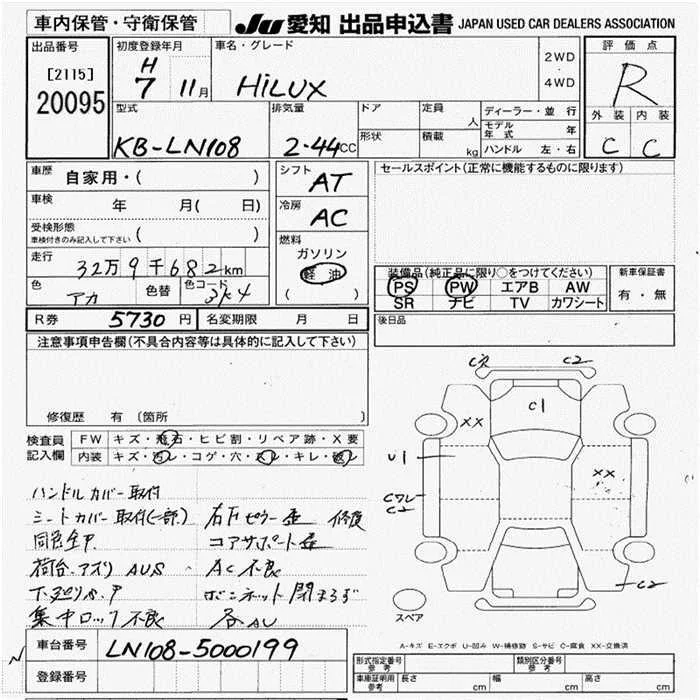 車内保管・守衛保管
JU 愛知 出品申込書 JAPAN USED CAR DEALERS ASSOCIATION
出品番号
[2115]
20095
初度登録年月
H
7 11月
車名・グレード
HiLUX
2WD
・
4WD
評価点
R
外装 内装
C C
型式
KB-LN108
排気量
2-44CC
ドア
形状
定員
人
積載
kg
ディーラー・並行
モデル年式 年
ハンドル 左・右
車歴 自家用・( )
車検 年 月( 日)
受検形態
車検付きのみ記入して下さい ( )
走行 32万9千682km
色 アカ 色替 色コード 3K4
シフト AT
冷房 AC
燃料
ガソリン
軽油
( )
セールスポイント(正常に機能するものに限ります)
装備品(純正品に限り○をつけてください)
PS PW エアB AW
SR ナビ TV カワシート
新車保証書
有・無
R券 5730円 名変期限 月 日
後日品
注意事項申告欄(不具合内容等は具体的に記入して下さい)
修復歴 有 〔箇所 〕
検査員記入欄
FW キズ・飛石・ヒビ割・リペア跡・X要
内装 キズ・汚レ・コゲ・穴・スレ・キレ・破レ
ハンドルカバー取付
シートカバー取付(一部) 右下ピラー 修復
同色全P
コアサポート
荷台.アオリ AUS AC不良
下廻りS.P ボンネット閉まらず
集中ロック不良 各AU
C欠 C2
C1
XX
U1
XX
Cワレ
C2
C2
スペア
A-キズ E-エクボ U-凹み W-補修跡 S-サビ C-腐食 XX-交換済
N
車台番号 LN108-5000199
登録番号
形式指定番号 参考
類別区分番号 参考
車庫証明用 参考 長さ cm 幅 cm 高さ cm